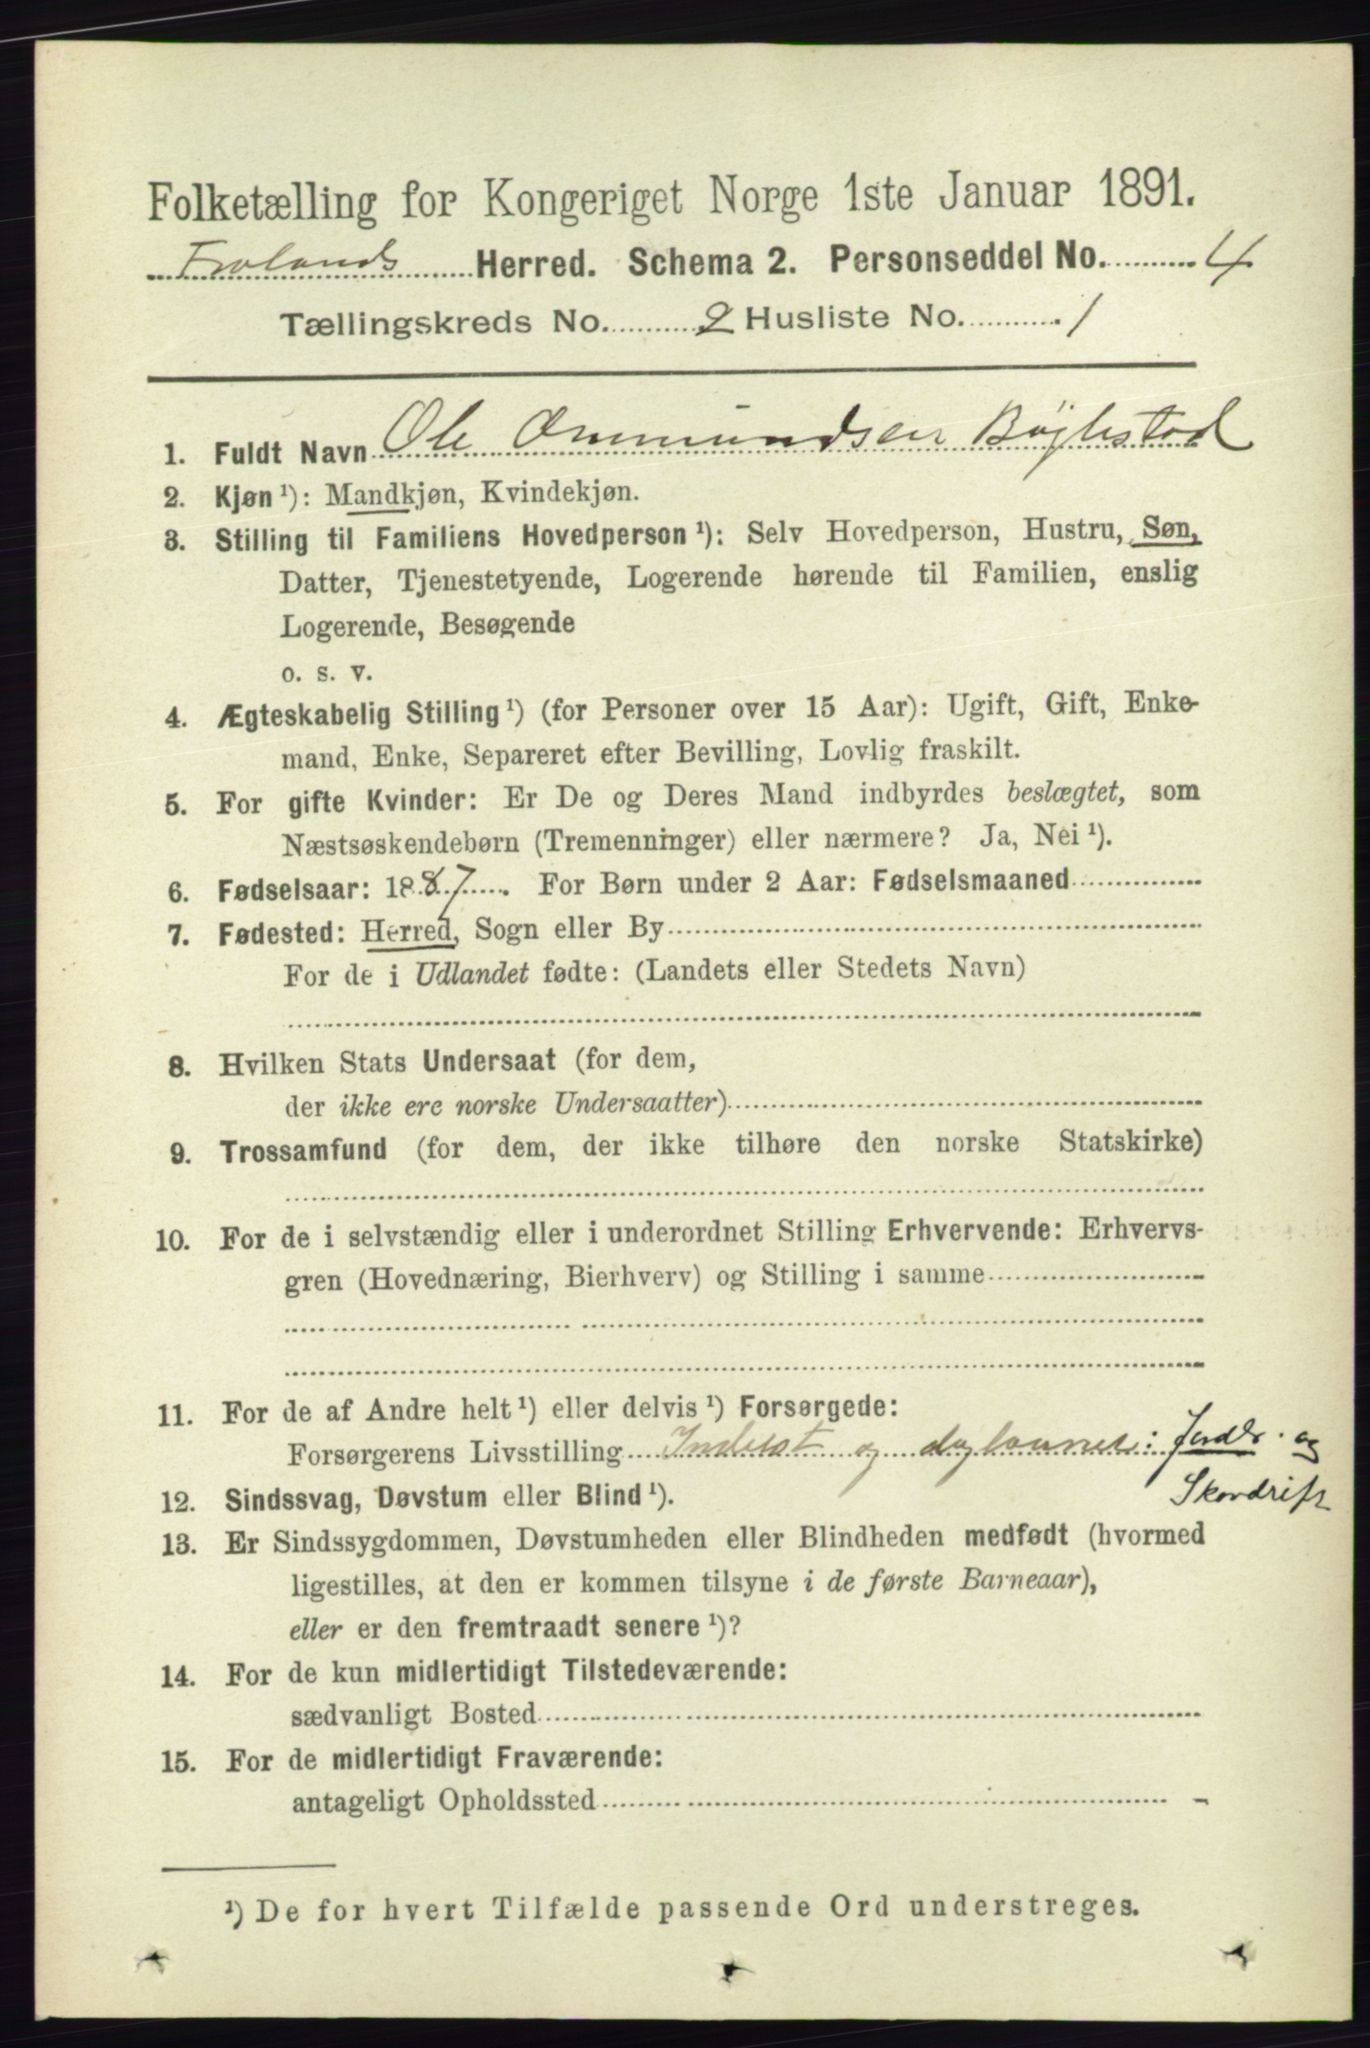 Folketælling for Kongeriget Norge 1ste Januar 1891.
Frolands Herred. Schema 2. Personseddel No. 4
Tællingskreds No. 2 Husliste No. 1
1. Fuldt Navn Ole Ommundsen Bøjlestad
2. Kjøn ¹): Mandkjøn, Kvindekjøn.
3. Stilling til Familiens Hovedperson ¹): Selv Hovedperson, Hustru, Søn,
Datter, Tjenestetyende, Logerende hørende til Familien, enslig
Logerende, Besøgende
o. s. v.
4. Ægteskabelig Stilling ¹) (for Personer over 15 Aar): Ugift, Gift, Enke-
mand, Enke, Separeret efter Bevilling, Lovlig fraskilt.
5. For gifte Kvinder: Er De og Deres Mand indbyrdes beslægtet, som
Næstsøskendebørn (Tremenninger) eller nærmere? Ja, Nei ¹).
6. Fødselsaar: 1887. For Børn under 2 Aar: Fødselsmaaned
7. Fødested: Herred, Sogn eller By
For de i Udlandet fødte: (Landets eller Stedets Navn)
8. Hvilken Stats Undersaat (for dem,
der ikke ere norske Undersaatter)
9. Trossamfund (for dem, der ikke tilhøre den norske Statskirke)
10. For de i selvstændig eller i underordnet Stilling Erhvervende: Erhvervs-
gren (Hovednæring, Bierhverv) og Stilling i samme
11. For de af Andre helt ¹) eller delvis ¹) Forsørgede:
Forsørgerens Livsstilling Inderst og daglønner: Jordbr. og
Skovdrift
12. Sindssvag, Døvstum eller Blind ¹).
13. Er Sindssygdommen, Døvstumheden eller Blindheden medfødt (hvormed
ligestilles, at den er kommen tilsyne i de første Barneaar),
eller er den fremtraadt senere ¹)?
14. For de kun midlertidigt Tilstedeværende:
sædvanligt Bosted
15. For de midlertidigt Fraværende:
antageligt Opholdssted
¹) De for hvert Tilfælde passende Ord understreges.